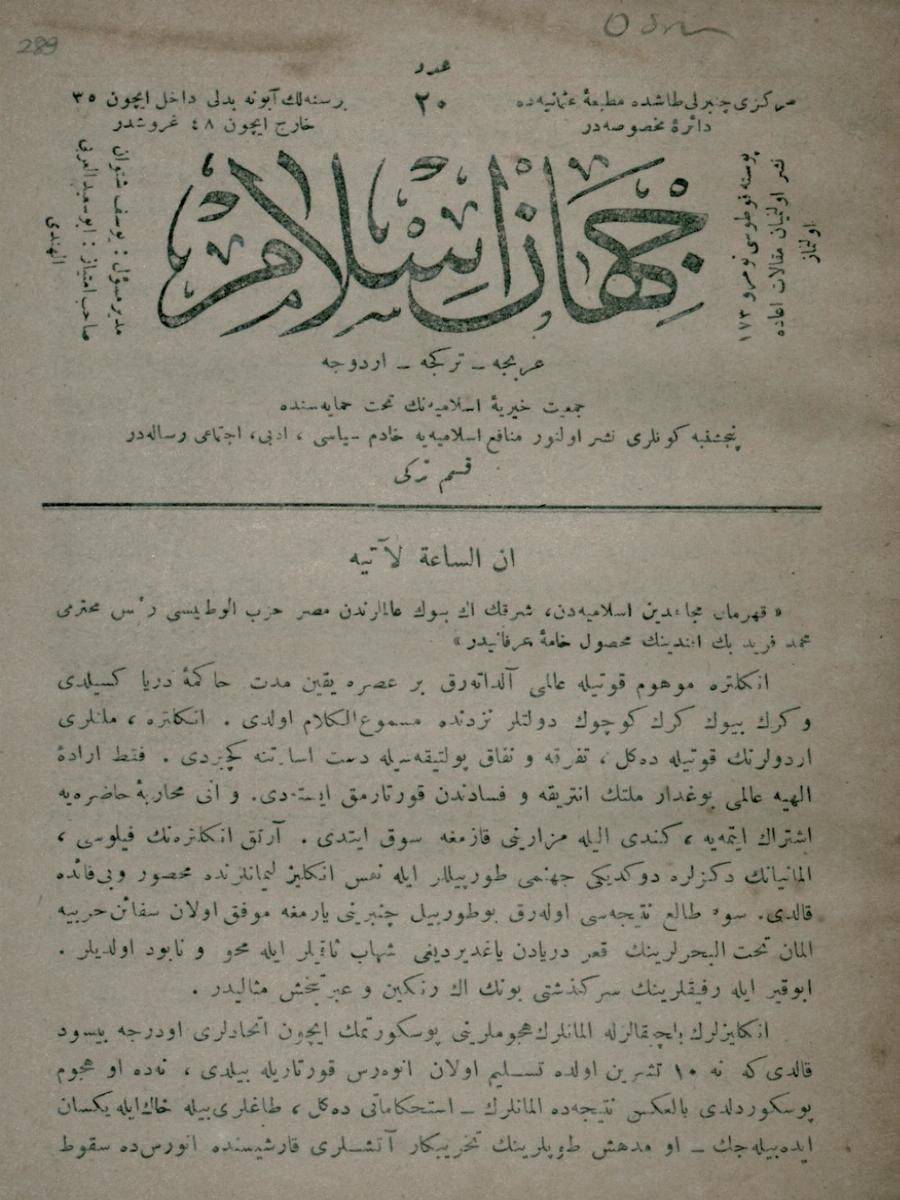 289
عدد
٢٠
مركزی چنبرلی طاشده مطبعهٔ عثمانیه‌ده
دائرهٔ مخصوصه‌در
بر سنه‌لك آبونه بدلی داخل ایچون ٣٥
خارج ایچون ٤٨ غروشدر
پوسته قوطوسی نومرو ١٧٣
نشر اولنمیان مقالات اعاده
اولنماز
جهان اسلام
مدیر مسؤل : یوسف شتوان
صاحب امتیاز : ابو سعید العربی
الهندی
عربجه – تركجه – اردوجه
جمعیت خیریهٔ اسلامیه‌نك تحت حمایه‌سنده
پنجشنبه كونلری نشر اولنور منافع اسلامیه‌یه خادم سیاسی ، ادبی، اجتماعی رساله‌در
قسم تركی
ان الساعة لآتیه
« قهرمان مجاهدین اسلامیه‌دن، شرقك اك بیوك عالملرندن مصر حزب الوطنیسی رئیس محترمی
محمد فرید بك افندینك محصول خامهٔ عرفانیدر »
انكلتره موهوم قوتیله عالمی آلداته‌رق بر عصره یقین مدت حاكمهٔ دریا كسیلدی
و كرك بیوك كرك كوچوك دولتلر نزدنده مسموع‌الكلام اولدی . انكلتره ، ملتلری
اردولرنك قوتیله ده‌كل ، تفرقه و نفاق پولتیقه‌سیله دست اسارتنه كچیردی . فقط ارادهٔ
الهیه عالمی بوغدار ملتك انتریقه و فسادندن قورتارمق ایسته‌دی. و آنی محاربهٔ حاضره‌یه
اشتراك ایتمه‌یه ، كندی الیله مزارینی قازمغه سوق ایتدی . آرتق انكلتره‌نك فیلوسی ،
المانیانك دكزلره دوكدیكی جهنمی طورپیللر ایله نفس انكلیز لیمانلرنده محصور و بی‌فائده
قالدی. سوء طالع نتیجه‌سی اوله‌رق بوطورپیل چنبرینی یارمغه موفق اولان سفائن حربیه
المان تحت البحرلرینك قعر دریادن یاغدیردیغی شهاب ثاقبلر ایله محو و نابود اولدیلر .
ابوقیر ایله رفیقلرینك سركذشتی بونك اك رنكین و عبرتبخش مثالیدر .
انكلیزلرك بلچیقالیلرله المانلرك هجوملرینی پوسكورتمك ایچون اتحادلری اودرجه بیسود
قالدی كه نه ١٠ تشرین اولده تسلیم اولان انورس قورتاریله بیلدی ، نه‌ده او هجوم
پوسكوردلدی بالعكس نتیجه‌ده المانلرك – استحكاماتی ده‌كل ، طاغلری بیله خاك‌ایله یكسان
ایده‌بیله‌جك – او مدهش طوپلرینك تخریبكار آتشلری قارشیسنده انورس‌ده سقوط